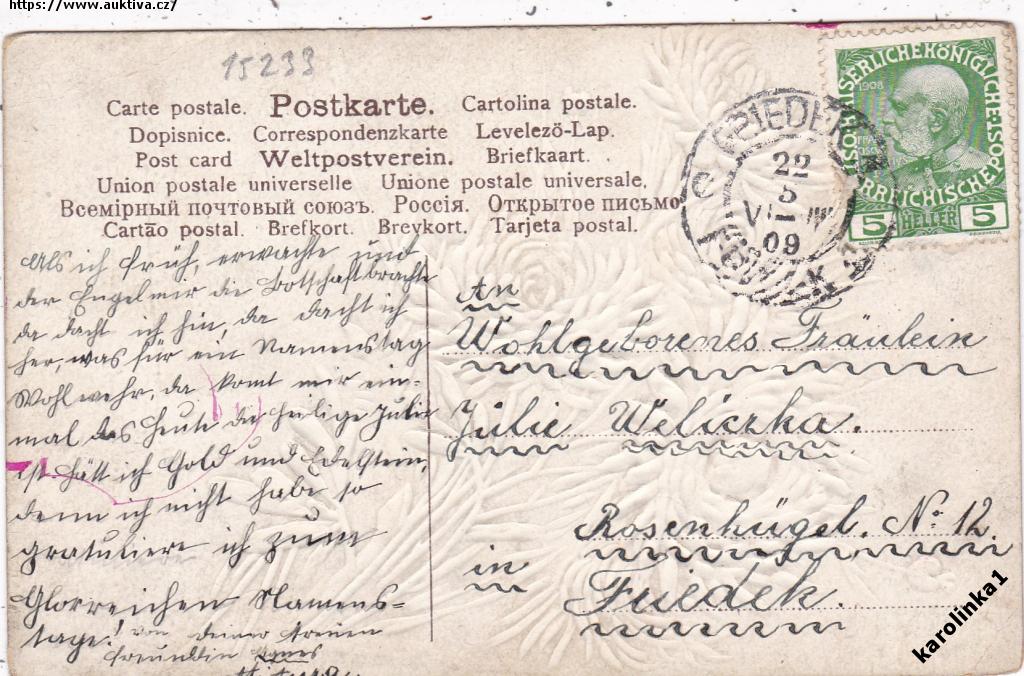 https://www.auktiva.cz/
15233
Carte postale. Postkarte. Cartolina postale.
Dopisnice. Correspondenzkarte Levelező-Lap.
Post card Weltpostverein. Briefkaart.
Union postale universelle Unione postale universale.
Всемірный почтовый союзъ. Россія. Открытое письмо
Cartāo postal. Brefkort. Brevkort. Tarjeta postal.
22
5
09
1908
KAISERLICHEKÖNIGLICHE
ÖSTERREICHISCHEPOST
5 HELLER 5
Als ich früh, erwachte und
der Engel mir die Botschaft brachte
da dacht ich hin, da dacht ich
her, was für ein Namenstag
Wohl wehr, da komt mir ein-
mal das heute die heilige Julie
ist hätt ich Gold und Edelstein,
denn ich nicht habe so
gratuliere ich zum
Glorreichen Namens-
tage! von deiner treuen
freundlin Agnes
An
Wohlgeborenes Fräulein
Julie Weliczka.
Rosenhügel. No: 12.
in
Friedek.
karolinka1